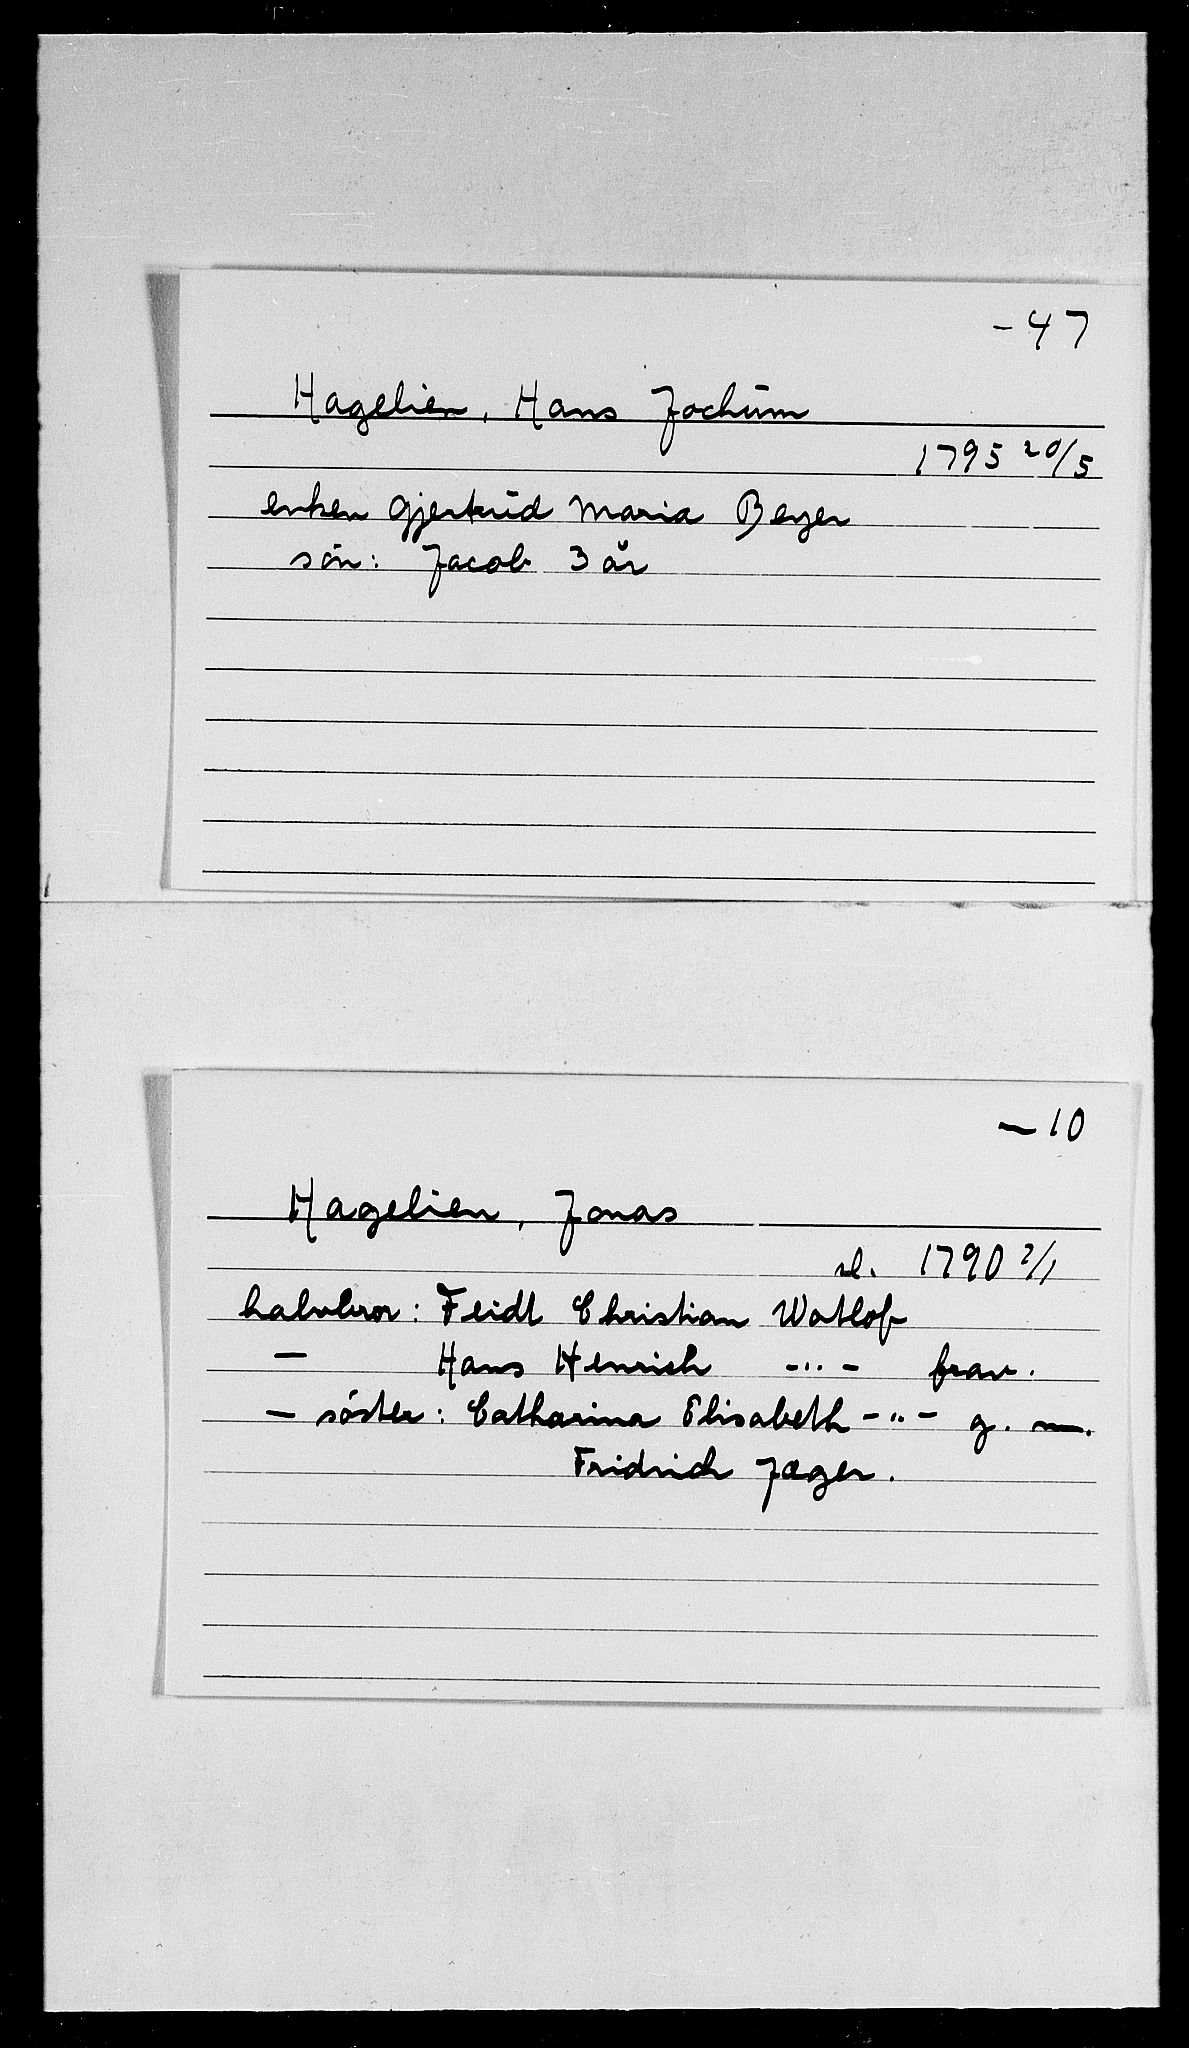 -47
Hagelien, Hans Jochūm
1795 20/5
enken Gjertrūd Maria Beyer
sön: Jacob 3 år
-10
Hagelien, Jonas
sl. 1790 2/1
halvbror: Feidt Christian Watlof
— Hans Henrich -"- frav.
— söster: Catharina Elisabeth -"- g. m.
Fridrich Jæger.